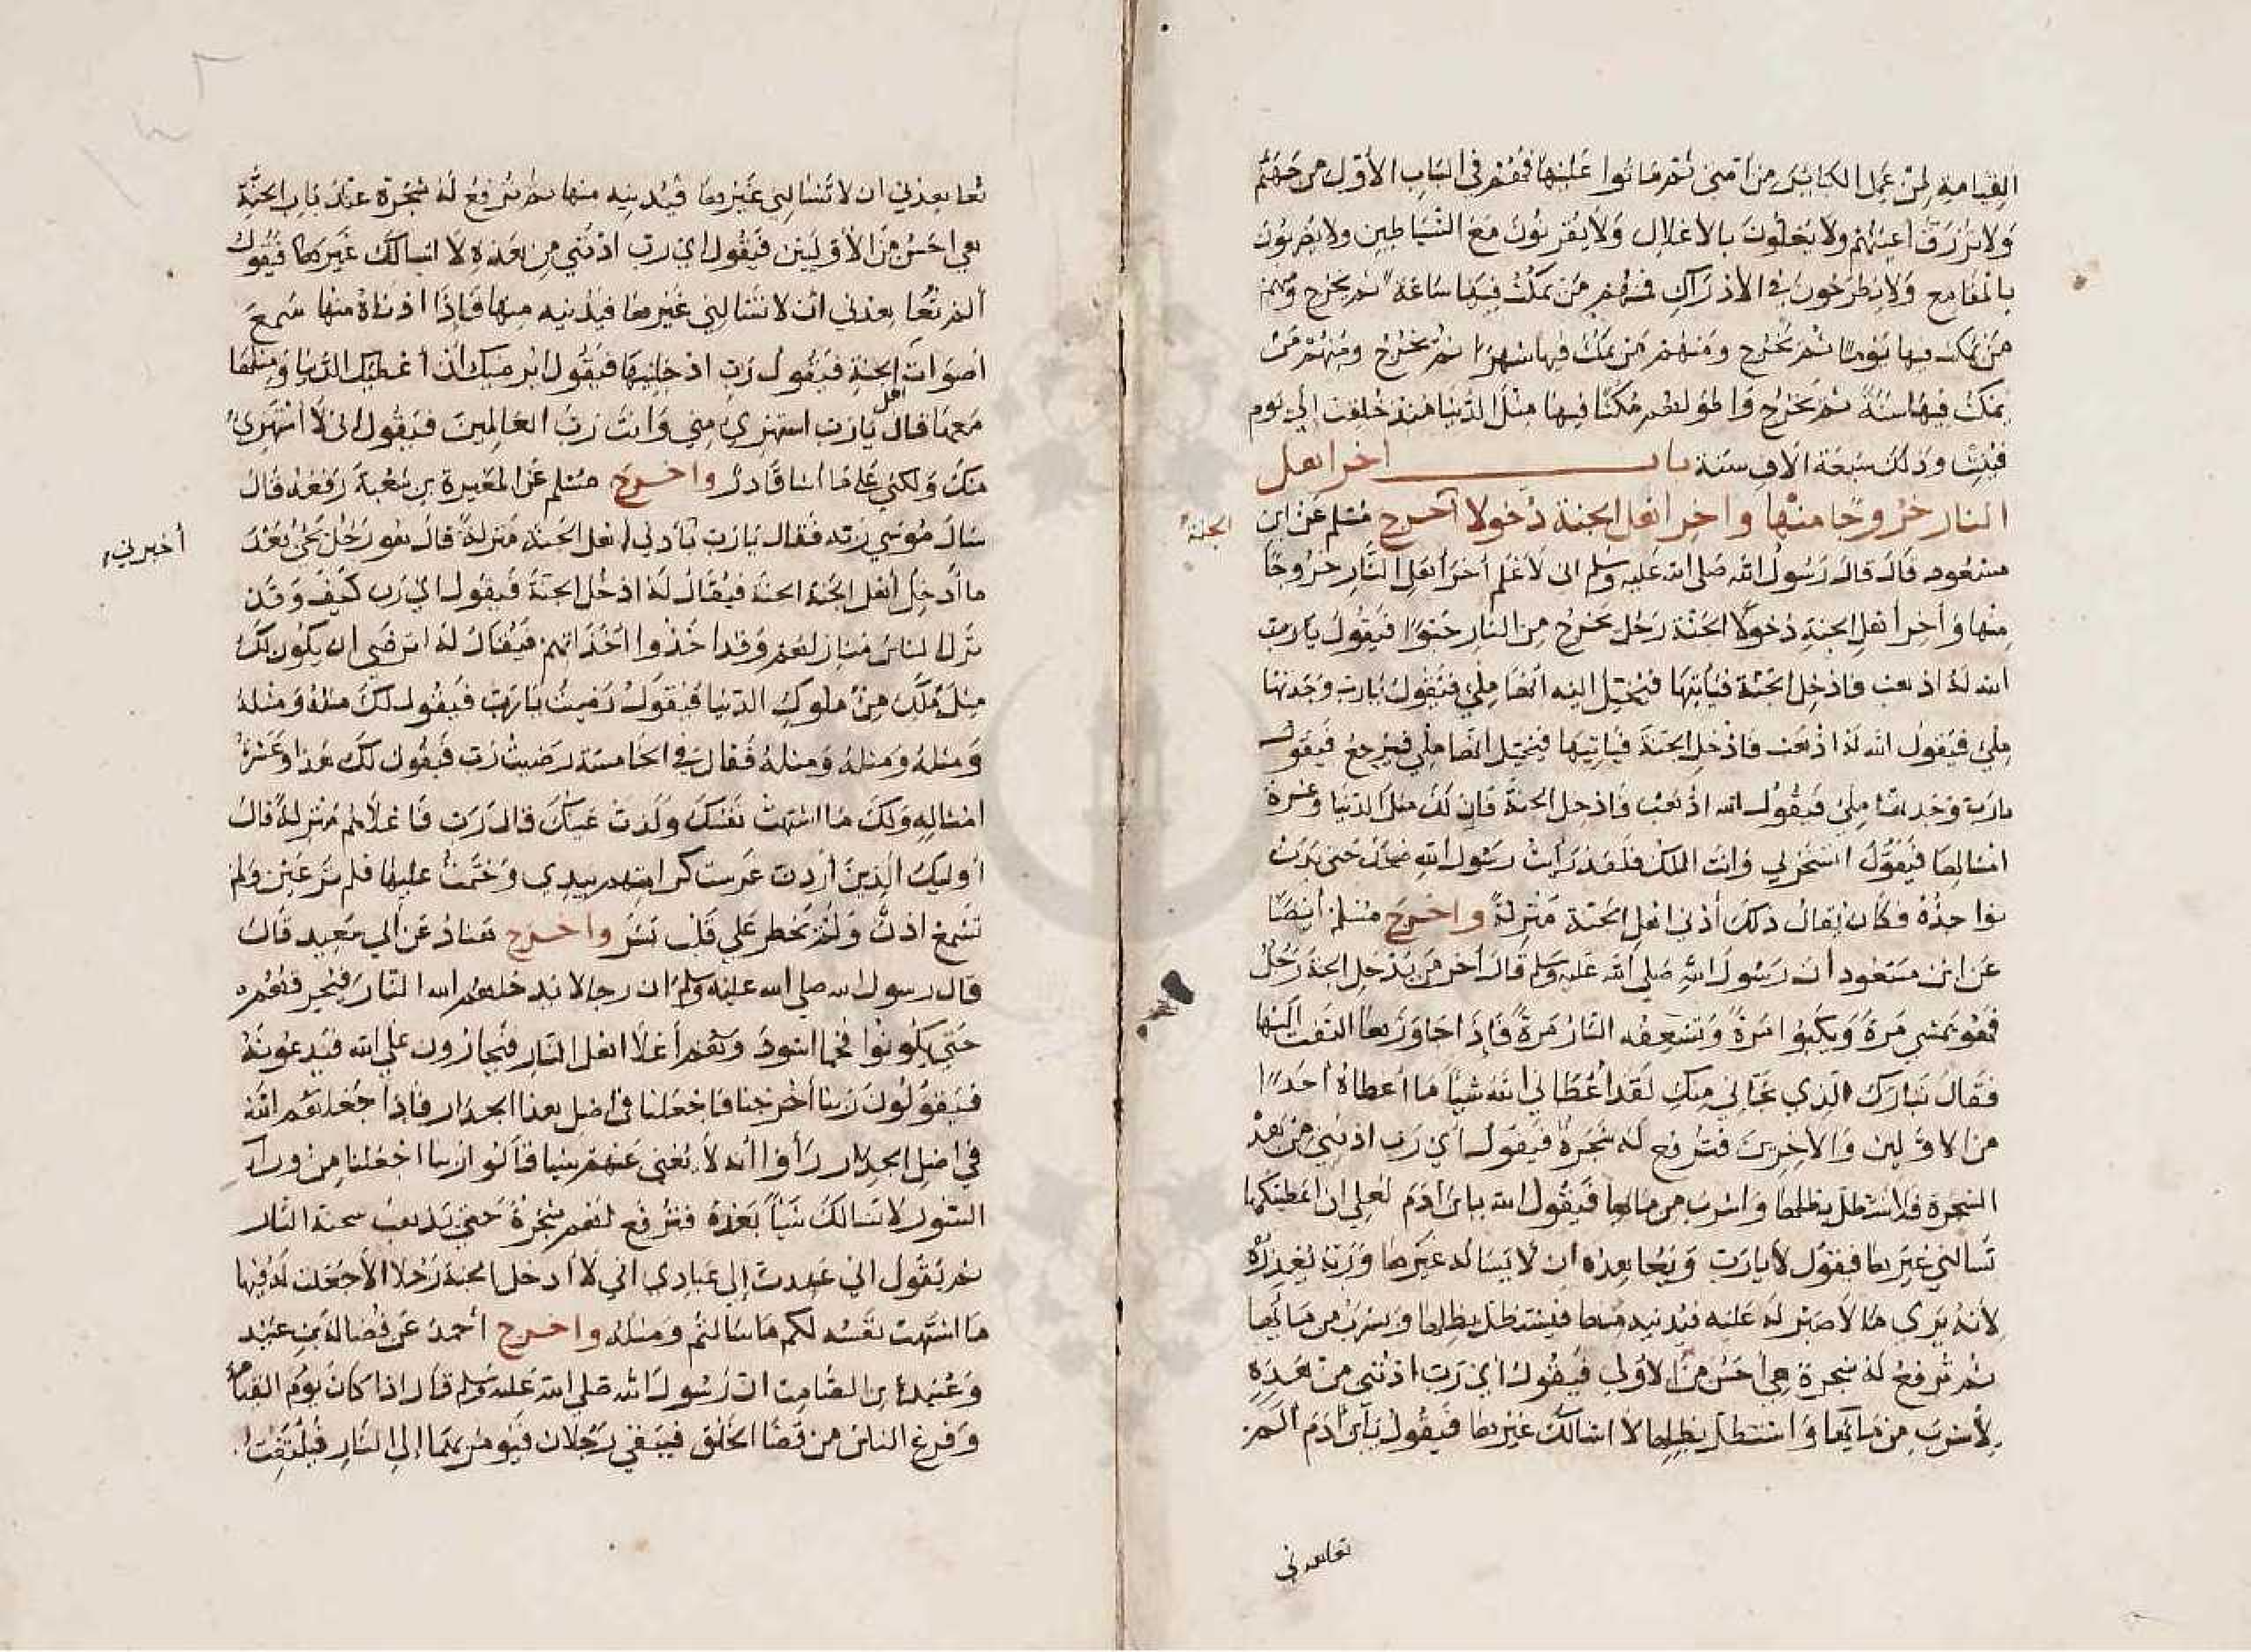 القيامة لمن عمل الكبائر من أمتي ثم ماتوا عليها فهم في الباب الأول من جهنم
ولا تزرق أعينهم ولا يغلون بالأغلال ولا يقرنون مع الشياطين ولا يضربون
بالمقامع ولا يطرحون في الأدراك فمنهم من يمكث فيها ساعة ثم يخرج ومنهم
من يمكث فيها يوما ثم يخرج ومنهم من يمكث فيها شهرا ثم يخرج ومنهم من
يمكث فيها سنة ثم يخرج وأطولهم مكثا فيها مثل الدنيا منذ خلقت إلى يوم
فنيت وذلك سبعة آلاف سنة باب آخر أهل
النار خروجا منها وآخر أهل الجنة دخولا أخرج مسلم عن ابن
الجنة
مسعود قال قال رسول الله صلى الله عليه وسلم اني لأعلم آخر أهل النار خروجا
منها وآخر أهل الجنة دخولا الجنة رجل يخرج من النار حبوا فيقول يا رب
الله له اذهب فادخل الجنة فيأتيها فيخيل اليه أنها ملئ فيقول يا رب وجدتها
ملئ فيقول الله له اذهب فادخل الجنة فيأتيها فيخيل انها ملئ فيرجع فيقول
يا رب وجدتها ملئ فيقول الله اذهب فادخل الجنة فان لك مثل الدنيا وعشرة
امثالها فيقول اتسخر بي وانت الملك فلقد رأيت رسول الله ضحك حتى بدت
نواجذه فكان يقال ذلك أدنى اهل الجنة منزلة وأخرج مسلم أيضا
عن ابن مسعود أن رسول الله صلى الله عليه وسلم قال آخر من يدخل الجنة رجل
فهو يمشي مرة ويكبو مرة وتسعفه النار مرة فإذا جاوزها التفت اليها
فقال تبارك الذي نجاني منك لقد أعطاني الله شيئا ما أعطاه أحدا
من الأولين والآخرين فترفع له شجرة فيقول أي رب ادنني من هذه
الشجرة فلاستظل بظلها واشرب من مائها فيقول الله يا بن آدم لعلي ان اعطيتكها
تسألني غيرها فيقول لا يا رب ويعاهده ان لا يسأله غيرها وربه يعذره
لأنه يرى ما لا صبر له عليه فيدنيه منها فيستظل بظلها ويشرب من مائها
ثم ترفع له شجرة هي أحسن من الاولى فيقول اي رب ادنني من هذه
لأشرب من مائها واستظل بظلها لا اسألك غيرها فيقول يا بن آدم ألم
تعاهدني
تعاهدني ان لا تسألني غيرها فيدنيه منها ثم ترفع له شجرة عند باب الجنة
هي احسن من الأوليين فيقول اي رب ادنني من هذه لا اسألك غيرها فيقول
ألم تعاهدني ان لا تسألني غيرها فيدنيه منها فإذا ادناه منها سمع
أصوات أهل الجنة فيقول رب ادخلنيها فيقول ايرضيك أن أعطيك الدنيا ومثلها
معها قال يا رب اتستهزئ مني وانت رب العالمين فيقول اني لا استهزئ
منك ولكني على ما أشاء قادر وأخرج مسلم عن المغيرة بن شعبة رفعه قال
سأل موسى ربه فقال يا رب ما أدنى أهل الجنة منزلة قال هو رجل يجئ بعد
أخبرني
ما أدخل أهل الجنة الجنة فيقال له ادخل الجنة فيقول اي رب كيف وقد
نزل الناس منازلهم وقد اخذوا أخذاتهم فيقال له اترضى ان يكون لك
مثل ملك من ملوك الدنيا فيقول رضيت يا رب فيقول لك مثله ومثله
ومثله ومثله ومثله فقال في الخامسة رضيت رب فيقول لك هذا وعشرة
امثاله ولك ما اشتهت نفسك ولذت عينك قال رب فأعلاهم منزلة قال
أوليك الذين أردت غرست كرامتهم بيدي وختمت عليها فلم تر عين ولم
تسمع اذن ولم يخطر على قلب بشر وأخرج هناد عن أبي سعيد قال
قال رسول الله صلى الله عليه وسلم ان رجالا يدخلهم الله النار فيحرقهم
حتى يكونوا فحما اسود وهم أعلا اهل النار فيجأرون على الله فيدعونه
فيقولون ربنا أخرجنا فاجعلنا في اصل هذا الجدار فإذا جعلهم الله
في اصل الجدار رأوا أنه لا يغني عنهم شيئا قالوا ربنا اجعلنا من وراء
السور لا نسألك شيئا بعده فترفع لهم شجرة حتى تذهب سحنة النار
ثم يقول اني عهدت إلى عبادي اني لا أدخل الجنة رجلا الا جعلت له فيها
ما اشتهت نفسه لكم ما سألتم ومثله وأخرج أحمد عن فضالة بن عبيد
وعبادة بن الصامت ان رسول الله صلى الله عليه وسلم قال اذا كان يوم القيامة
وفرغ الناس من قضا الخلق فيبقى رجلان فيؤمر بهما إلى النار فيلتفت